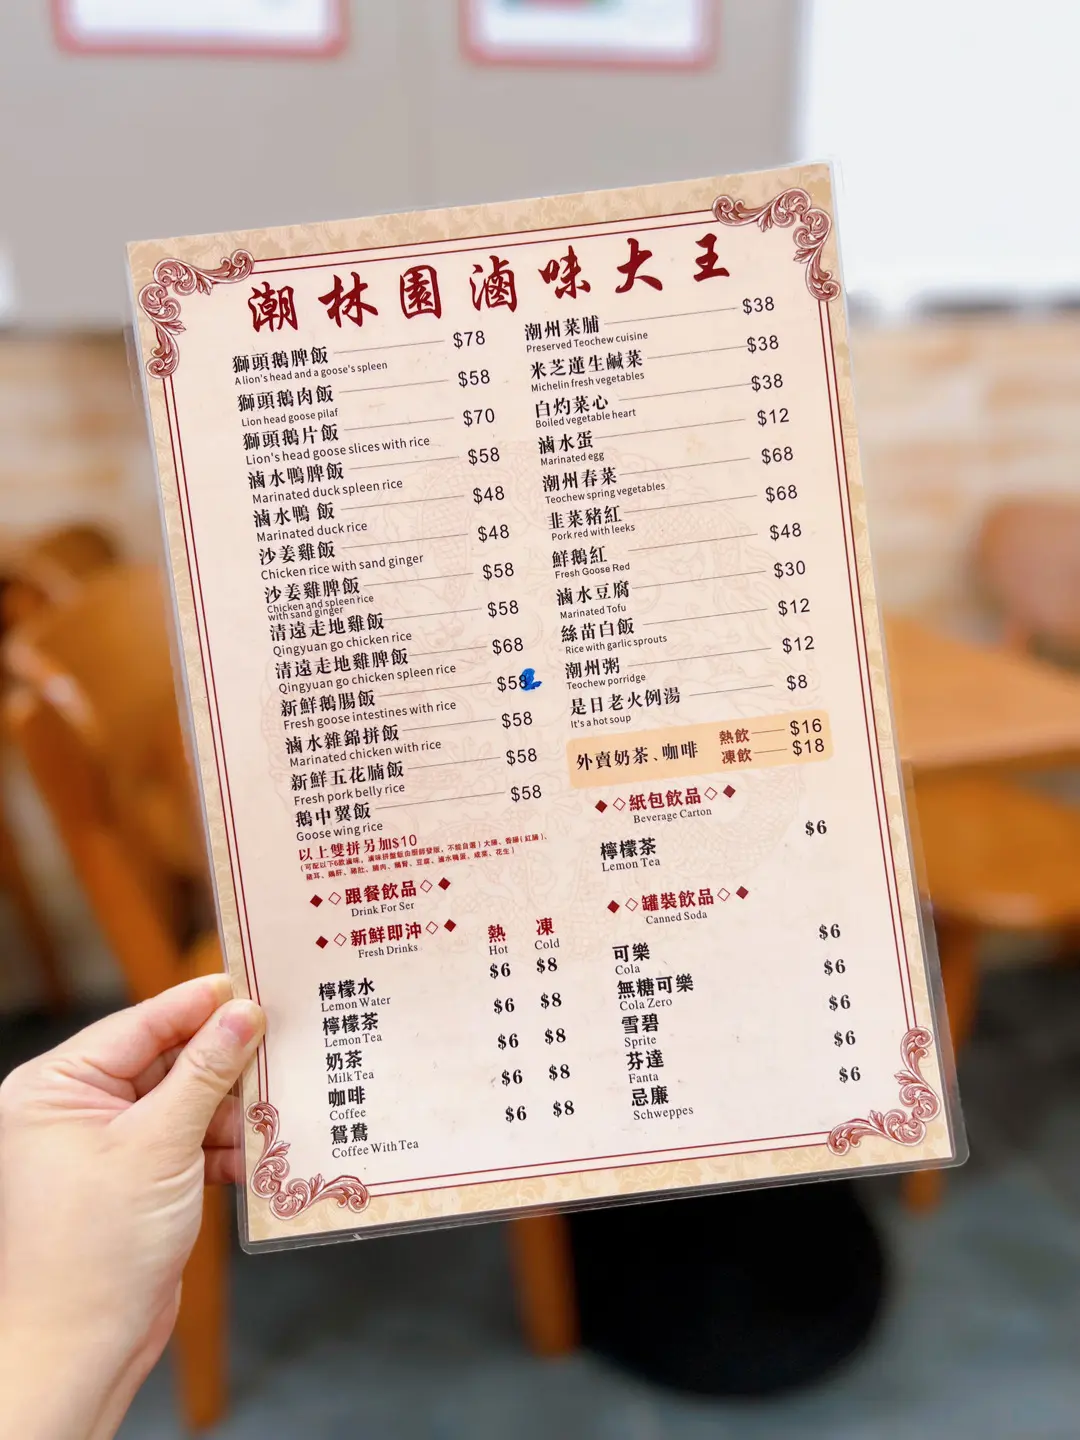 潮林園滷味大王
獅頭鵝脾飯 $78
A lion's head and a goose's spleen
獅頭鵝肉飯 $58
Lion head goose pilaf
獅頭鵝片飯 $70
Lion's head goose slices with rice
滷水鴨脾飯 $58
Marinated duck spleen rice
滷水鴨 飯 $48
Marinated duck rice
沙姜雞飯 $48
Chicken rice with sand ginger
沙姜雞脾飯 $58
Chicken and spleen rice
with sand ginger
清遠走地雞飯 $58
Qingyuan go chicken rice
清遠走地雞脾飯 $68
Qingyuan go chicken spleen rice
新鮮鵝腸飯 $58
Fresh goose intestines with rice
滷水雜錦拼飯 $58
Marinated chicken with rice
新鮮五花腩飯 $58
Fresh pork belly rice
鵝中翼飯 $58
Goose wing rice
以上雙拼另加$10
(可配以下6款滷味，滷味拼盤飯由廚師發版，不能自選) 大腸、香腸(紅腸)、
豬耳、鵝肝、豬肚、腩肉、鵝腎、豆腐、滷水鴨蛋、咸菜、花生)
跟餐飲品
Drink For Ser
新鮮即沖 熱 凍
Fresh Drinks Hot Cold
檸檬水 $6 $8
Lemon Water
檸檬茶 $6 $8
Lemon Tea
奶茶 $6 $8
Milk Tea
咖啡 $6 $8
Coffee
鴛鴦 $6 $8
Coffee With Tea
潮州菜脯 $38
Preserved Teochew cuisine
米芝蓮生鹹菜 $38
Michelin fresh vegetables
白灼菜心 $38
Boiled vegetable heart
滷水蛋 $12
Marinated egg
潮州春菜 $68
Teochew spring vegetables
韭菜豬紅 $68
Pork red with leeks
鮮鵝紅 $48
Fresh Goose Red
滷水豆腐 $30
Marinated Tofu
絲苗白飯 $12
Rice with garlic sprouts
潮州粥 $12
Teochew porridge
是日老火例湯 $8
It's a hot soup
外賣奶茶、咖啡 熱飲 $16
凍飲 $18
紙包飲品
Beverage Carton
檸檬茶 $6
Lemon Tea
罐裝飲品
Canned Soda
可樂 $6
Cola
無糖可樂 $6
Cola Zero
雪碧 $6
Sprite
芬達 $6
Fanta
忌廉 $6
Schweppes